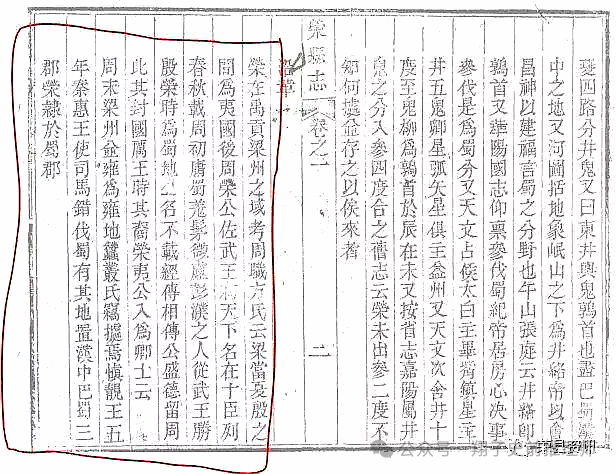 夔四路分井鬼又曰東井輿鬼鶉首也盡巴蜀漢
中之地又河圖括地象岷山之下爲井絡帝以會
昌神以建福言蜀之分野也午山張庭云井絡卽
鶉首又華陽國志仰稟參伐蜀紀帝居房心決事
參伐是爲蜀分又天文占侯太白主畢觜鎮星主
井五鬼卿星弧矢星俱主益州又天文次舍井十
度至鬼柳爲鶉首於辰在未又按省志嘉陽屬井
鬼之分入參四度合之舊志云榮未出參二度不
知何據並存之以俟來者
榮縣志
卷之一
二
沿革
榮在禹貢梁州之域考周職方氏云梁當夏殷之
間爲夷國後周榮公佐武王 天下名在十臣列
春秋載周初庸蜀羌髳微盧彭濮之人從武王勝
殷榮時爲蜀地之名不載經傳相傳公盛德留周
此其封國厲王時其裔榮夷公入爲卿士云
周末梁州並雍爲雍地蠶叢氏竊據焉慎靚王五
年秦惠王使司馬錯伐蜀有其地置漢中巴蜀三
郡榮隸於蜀郡
公众号